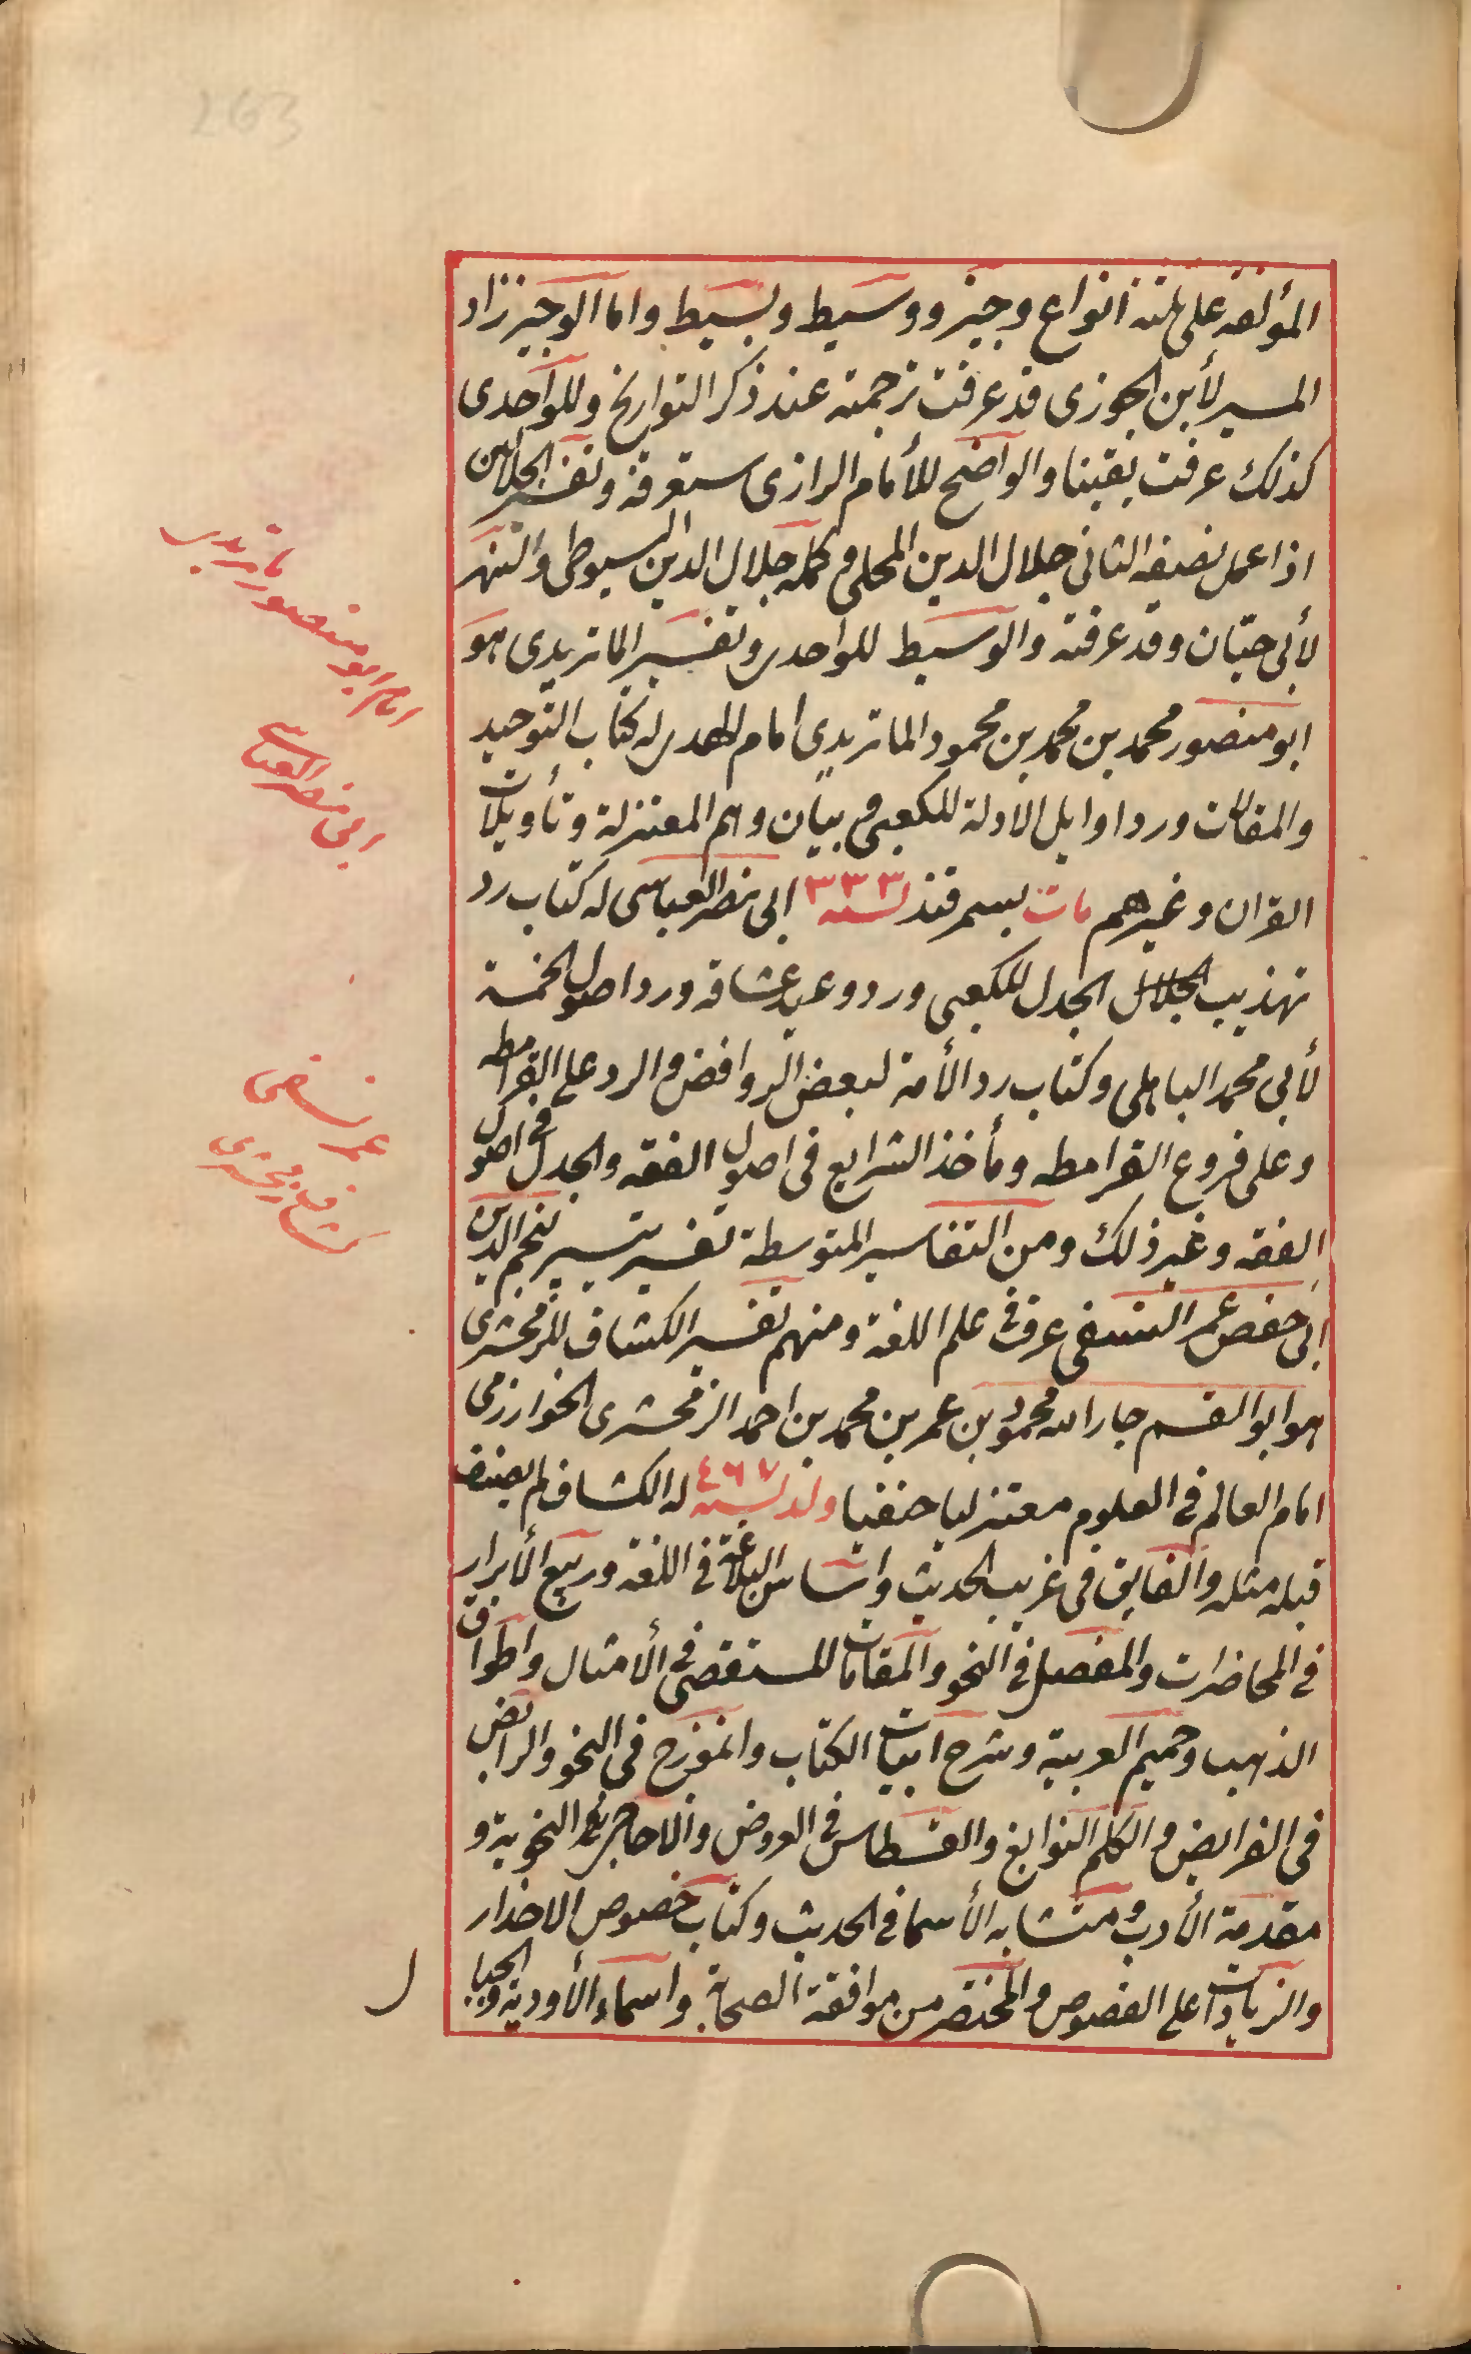 263
المؤلفه على ثلثة انواع وجيز ووسيط وبسيط واما الوجيز زاد
المسير لأبن الجوزى قد عرفت ترجمته عند ذكر التواريخ وللواحدى
كذلك عرفت يقينا والواضح للأمام الرازى ستعرفه وتفسير الجلالين
اذا عمل نصيفه الثانى جلال الدين المحلى وكمله جلال الدين السيوطى والنهر
لأبى حيّان وقد عرفته والوسيط للواحدى وتفسير الماتريدى هو
ابو منصور محمد بن محمد بن محمود الماتريدى امام الهدى له كتاب التوحيد
والمقالات ورد اوايل الادلة للكعبى وبيان وهم المعتزلة وتأويلات
القران وغيرهم مات بسمرقند سنه ٣٣٣ ابى نصر العياسى له كتاب رد
تهذيب الجدل للكعبى ورد وعيد عشاقه ورد اصول الخمسة
لأبى محمد الباهلى وكتاب رد الأمة لبعض الروافض والرد على القرامطه
وعلى فروع القرامطه ومأخذ الشرايع فى اصول الفقه والجدل فى اصول
الفقه وغير ذلك ومن التفاسير المتوسطة تفسير تيسير لنجم الدين
ابى حفص عمر النسفى عرف فى علم اللغة ومنهم تفسير الكشاف للزمخشرى
هو ابو القسم جار الله محمود بن عمر بن محمد بن احمد الزمخشرى الخوارزمى
امام العالم فى العلوم معتزليا حنفيا ولد سنه ٤٦٧ له الكشاف لم يصنف
قبله مثله والفايق فى غريب الحديث واساس البلاغة فى اللغة وربيع الأبرار
فى المحاضرات والمفصل فى النحو والمقامات للمستقصى فى الأمثال واطواق
الذهب وحميم العربية وشرح ابيات الكتاب وانموزج فى النحو والرائض
فى الفرايض والكلم النوابغ والقسطاس فى العروض والاحاجى النحوية و
مقدمة الأدب ومتشابه الأسما فى الحديث وكتاب خصوص الاخدار
والزيادات على الفصوص والمختصر من موافقة الصحابة واسماء الأودية والجبا
ل
امام ابو منصور ماتريدى
ابى نصر العياسى
عمر نسفى
كشاف زمخشرى